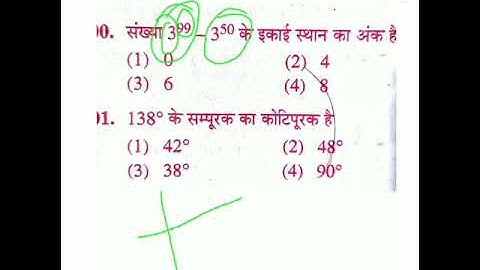 00. संख्या 3⁹⁹ – 3⁵⁰ के इकाई स्थान का अंक है
(1) 0 (2) 4
(3) 6 (4) 8
01. 138° के सम्पूरक का कोटिपूरक है
(1) 42° (2) 48°
(3) 38° (4) 90°